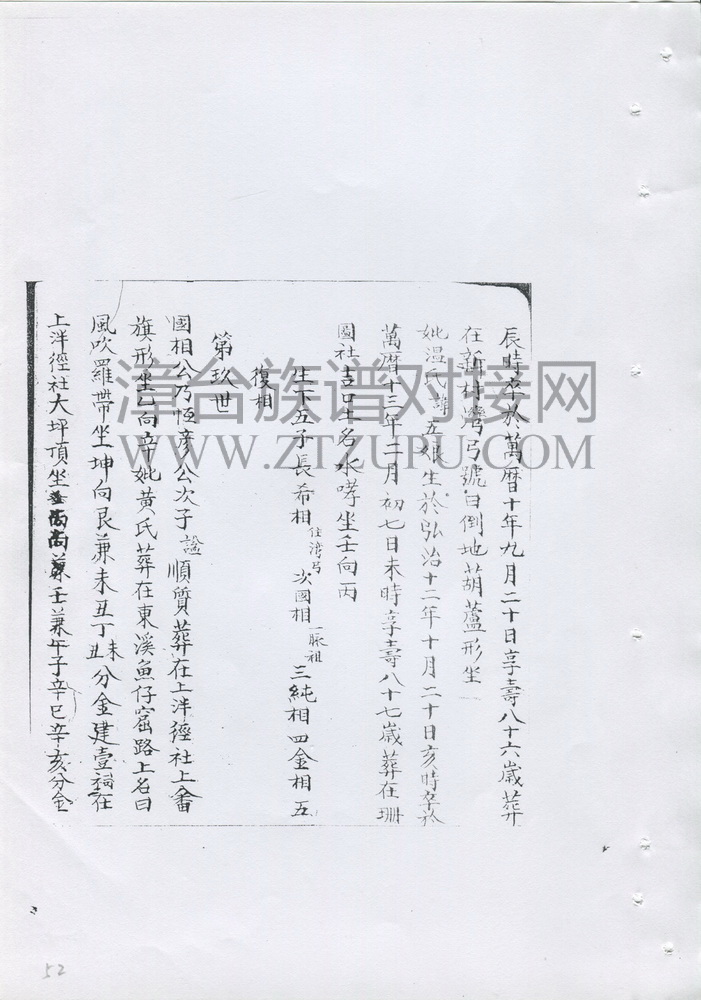 辰時卒於萬曆十年九月二十日享壽八十六歲葬
在新村灣弓號曰倒地葫蘆形坐
妣温氏諱五娘生於弘治十二年十月二十日亥時卒於
萬曆十三年二月初七日未時享壽八十七歲葬在珊
圖社吉口土名水哮坐壬向丙
生下五子長希相住湾弓次國相一脉祖三純相四金相五
復相
第玖世
國相公乃恒彦公次子諡順質葬在上洋徑社上畬
旗形坐乙向辛妣黄氏葬在東溪魚仔窟路上名曰
風吹羅帶坐坤向艮兼未丑丁未丑分金建壹祠在
上洋徑社大坪頂坐向兼壬兼午子辛巳辛亥分金
漳台族谱对接网
WWW.ZTZUPU.COM
52